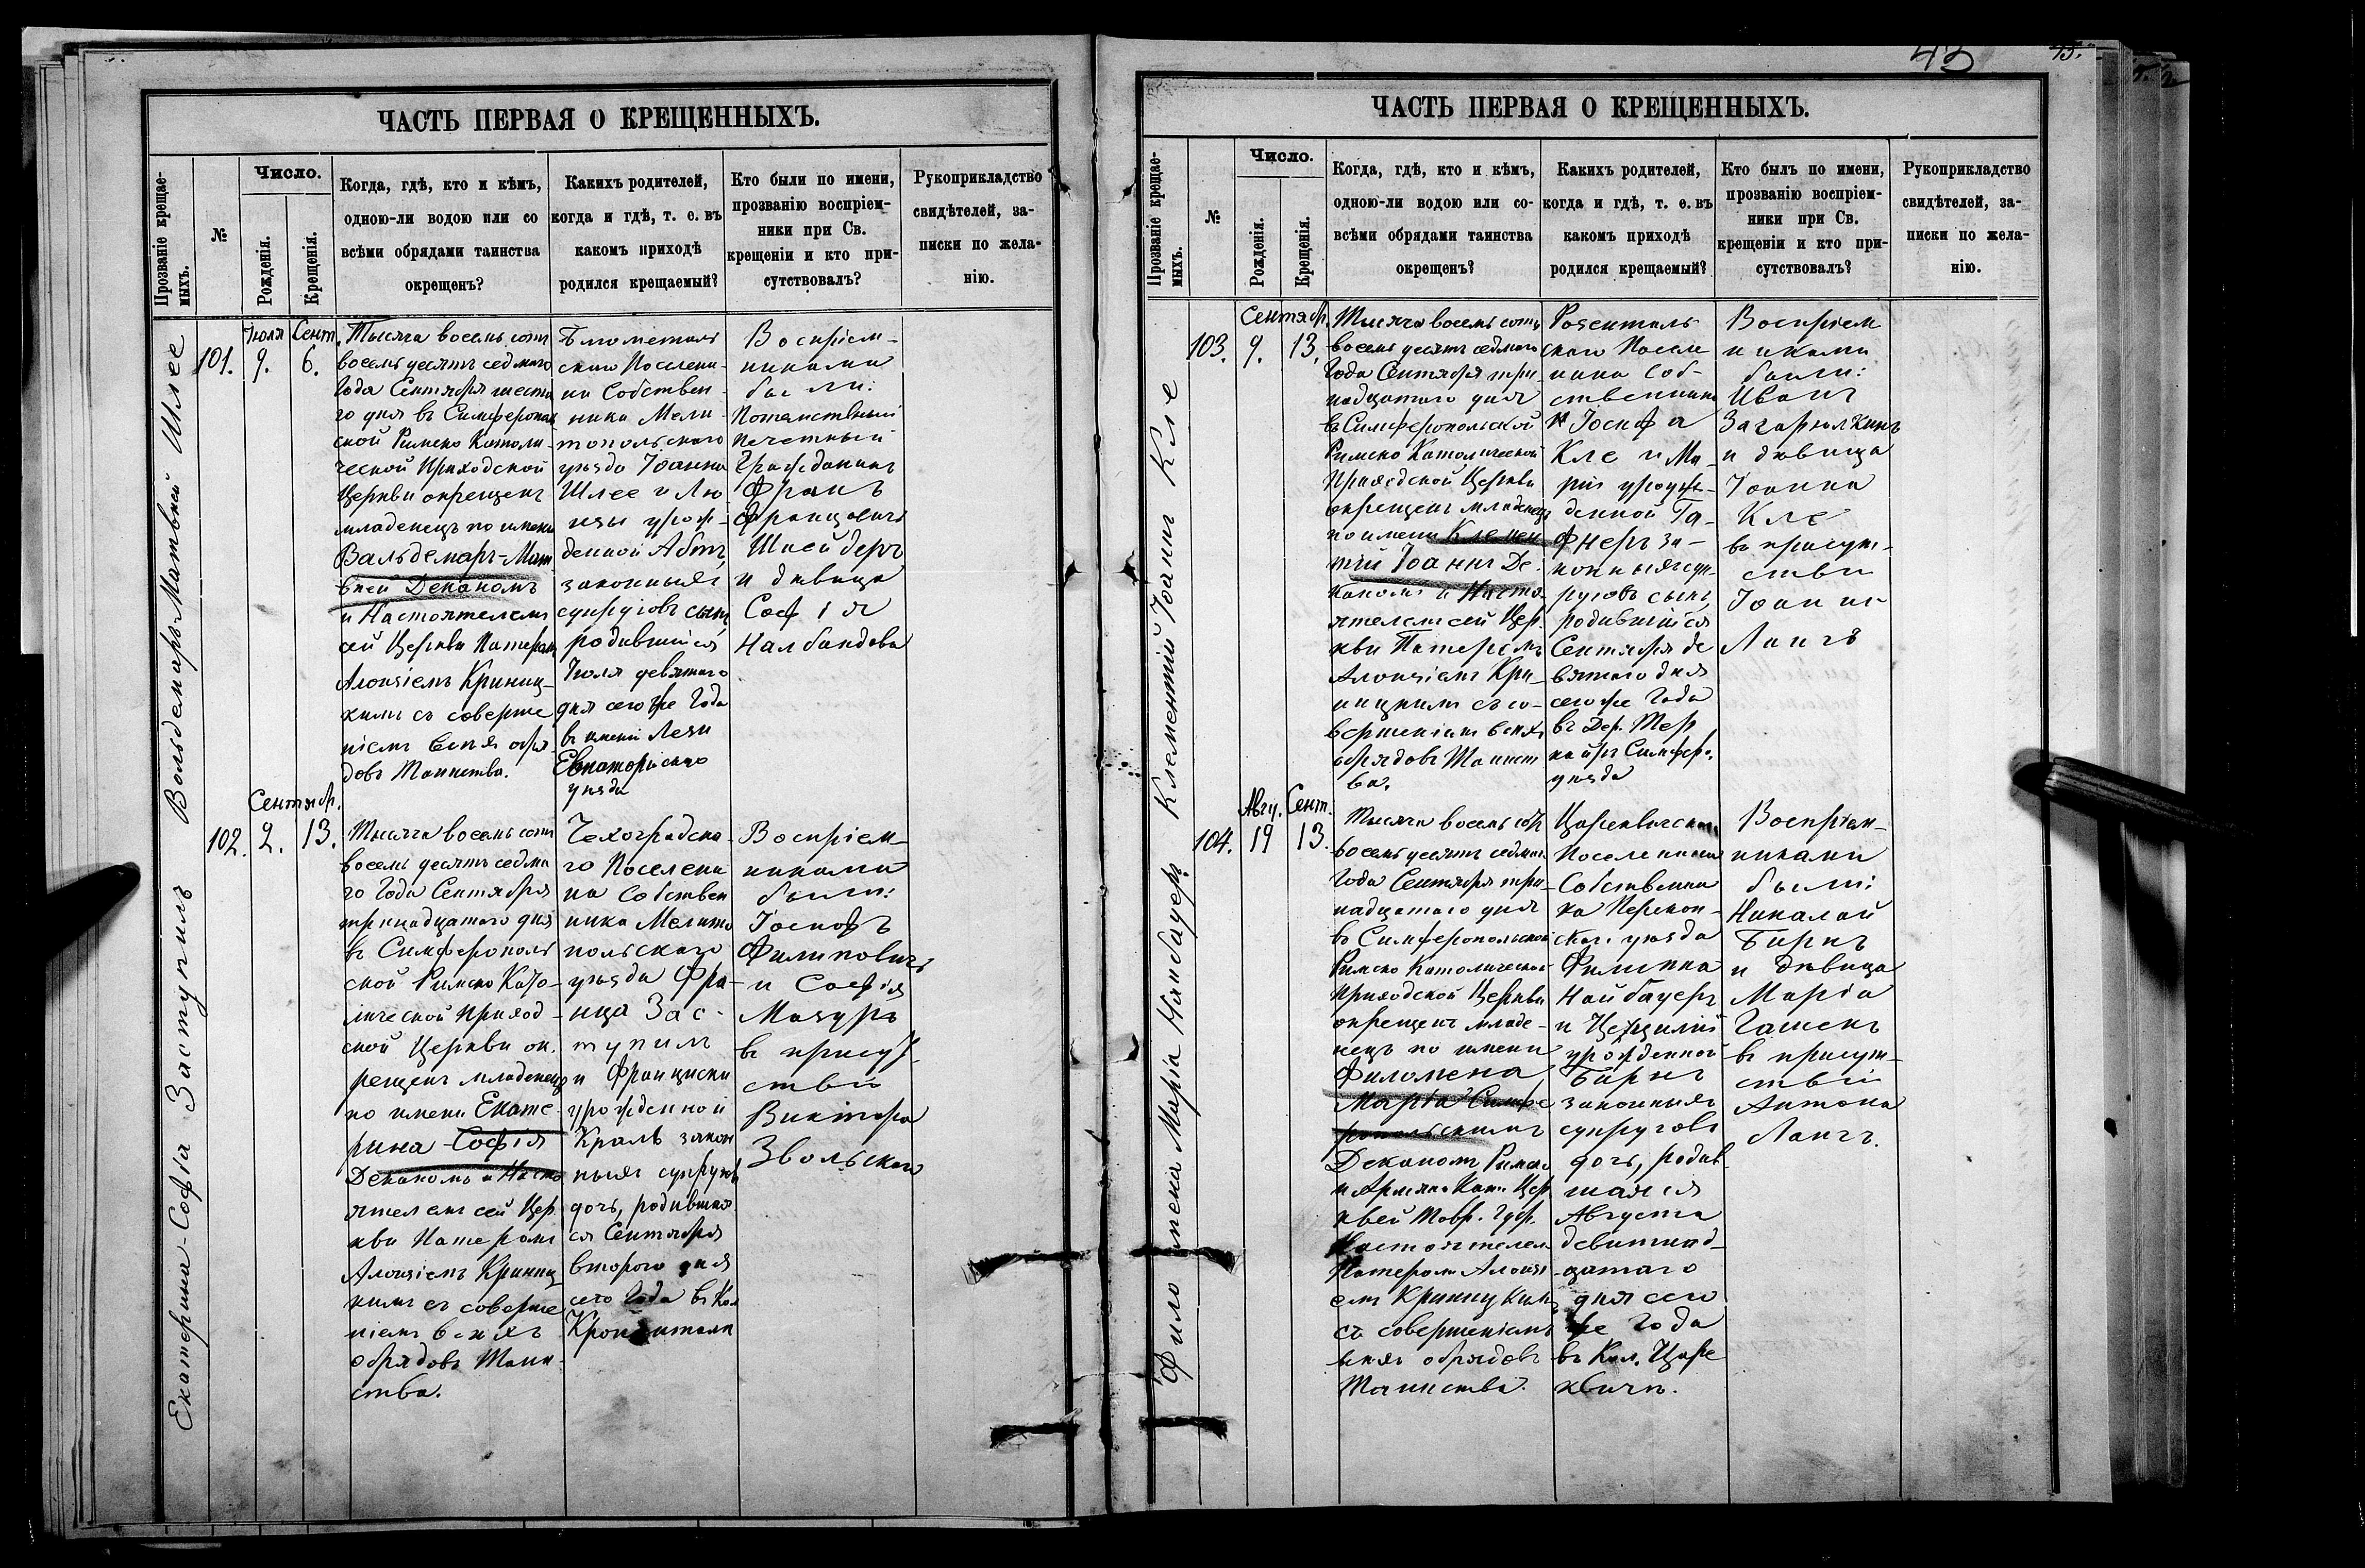 ЧАСТЬ ПЕРВАЯ О КРЕЩЕННЫХЪ.
Прозваніе крещае-
мыхъ.
№
Число.
Рожденія.
Крещенія.
Когда, гдѣ, кто и кѣмъ,
одною-ли водою или со
всѣми обрядами таинства
окрещенъ?
Какихъ родителей,
когда и гдѣ, т. е. въ
какомъ приходѣ
родился крещаемый?
Кто были по имени,
прозванію воспріем-
ники при Св.
крещеніи и кто при-
сутствовалъ?
Рукоприкладство
свидѣтелей, за-
писки по жела-
нію.
Вольдемаръ Матвѣй Шлее
101.
Іюля
9.
Сент.
6.
Тысяча восемь сотъ
восемьдесятъ седмого
Года Сентября шеста
го дня въ Симферополь
ской Римско Католи-
ческой Приходской
Церкви окрещенъ
младенецъ по имени
Вальдемаръ-Мат
вѣй Деканомъ
и Настоятелемъ
сей Церкви Патеромъ
Алоизіемъ Криниц-
кимъ съ соверше
ніемъ всѣхъ обря-
довъ Таинства.
скаго Поселяни-
на Собствен-
ника Мели-
топольскаго
уѣзда Іоанна
Шлее и Лю
изы урож-
денной Абтъ,
законныхъ
супруговъ сынъ,
родившійся
Іюля девятаго
дня сего же Года
въ имени Лези
Евпаторійскаго
уѣзда
Воспріем-
никами
были:
Потомственный
Почетный
Гражданинъ
Францъ
Францовичъ
Шнейдеръ
и дѣвица
Софія
Налбандова
Екатерина-Софія Заступилъ
102.
Сентябр.
2.
13.
Тысяча восемь сотъ
восемь десятъ седма
го Года Сентября
тринадцатаго дня
въ Симферополь
ской Римско Като-
лической Приход-
ской Церкви ок-
рещенъ младенецъ
по имени Екате-
рина-Софія
Деканомъ и Насто
ятелемъ сей Цер-
кви Патеромъ
Алоизіемъ Криниц
кимъ съ соверше
ніемъ всѣхъ
обрядовъ Таин-
ства.
Чехоградска-
го Поселяни
на Собствен
ника Мелито
польскаго
уѣзда Фра-
нца Зас-
тупилъ
и Франциски
урожденной
Кралъ закон
ныхъ супруговъ
дочь, родившая
ся Сентября
второго дня
сего Года въ Кол
Воспріем-
никами
были:
Іосифъ
Филиповичъ
и Софія
Мазуръ
въ присут-
ствіи
Виктора
Звольскаго
43
ЧАСТЬ ПЕРВАЯ О КРЕЩЕННЫХЪ.
Прозваніе крещае-
мыхъ.
№
Число.
Рожденія.
Крещенія.
Когда, гдѣ, кто и кѣмъ,
одною-ли водою или со-
всѣми обрядами таинства
окрещенъ?
Какихъ родителей,
когда и гдѣ, т. е. въ
какомъ приходѣ
родился крещаемый?
Кто былъ по имени,
прозванію воспріем-
ники при Св.
крещеніи и кто при-
сутствовалъ?
Рукоприкладство
свидѣтелей, за-
писки по жела-
нію.
Клементій Іоаннъ Кле
103.
Сентябр.
9.
13.
Тысяча восемь сотъ
восемь десятъ седмого
Года Сентября три-
надцатаго дня
въ Симферопольской
Римско Католической
Приходской Церкви
окрещенъ младенецъ
по имени Клемен
тій Іоаннъ Де-
каномъ и Насто-
ятелемъ сей Цер-
кви Патеромъ
Алоизіемъ Кри-
ницкимъ съ со-
вершеніемъ всѣхъ
обрядовъ Таинст
ва.
Розенталь-
скаго Поселя
нина Соб-
ственника
Іосифа
Кле и Ма-
ріи урож-
денной Га-
фнеръ за-
конныхъ суп-
руговъ сынъ,
родившійся
Сентября де
вятаго дня
сего же Года
въ Дер. Тер
наиръ Симфер.
уѣзда
Воспріем
никами
были:
Иванъ
и дѣвица
Іоанна
Кле
въ присут-
ствіи
Лангъ
Филомена Марія Найбауеръ
104.
Авгу.
19
Сент.
13.
Тысяча восемь сотъ
восемь десятъ седмаго
Года Сентября три-
надцатаго дня
въ Симферопольской
Римско Католической
Приходской Церкви
окрещенъ младе-
нецъ по имени
Филомена
Марія Симфе
ропольскимъ
Деканомъ Римско
и Армяно Кат. Цер
квей Тавр. Губ.
Настоятелемъ
Патеромъ Алоизі-
емъ Криницкимъ
съ совершеніемъ
всѣхъ обрядовъ
Таинства.
Царевичскаго
Поселянина
Собственни
ка Перекоп-
ска. уѣзда
Филиппа
Найбауеръ
и Цециліи
урожденной
Бирнъ
законныхъ
супруговъ
дочь, родив-
шаяся
Августа
девятнад-
цатаго
дня сего
же Года
въ Кол. Царе
квичъ.
Воспріем-
никами
были:
Николай
Бирнъ
и дѣвица
Марія
Гашекъ
въ присут-
ствіи
Антона
Лангъ.